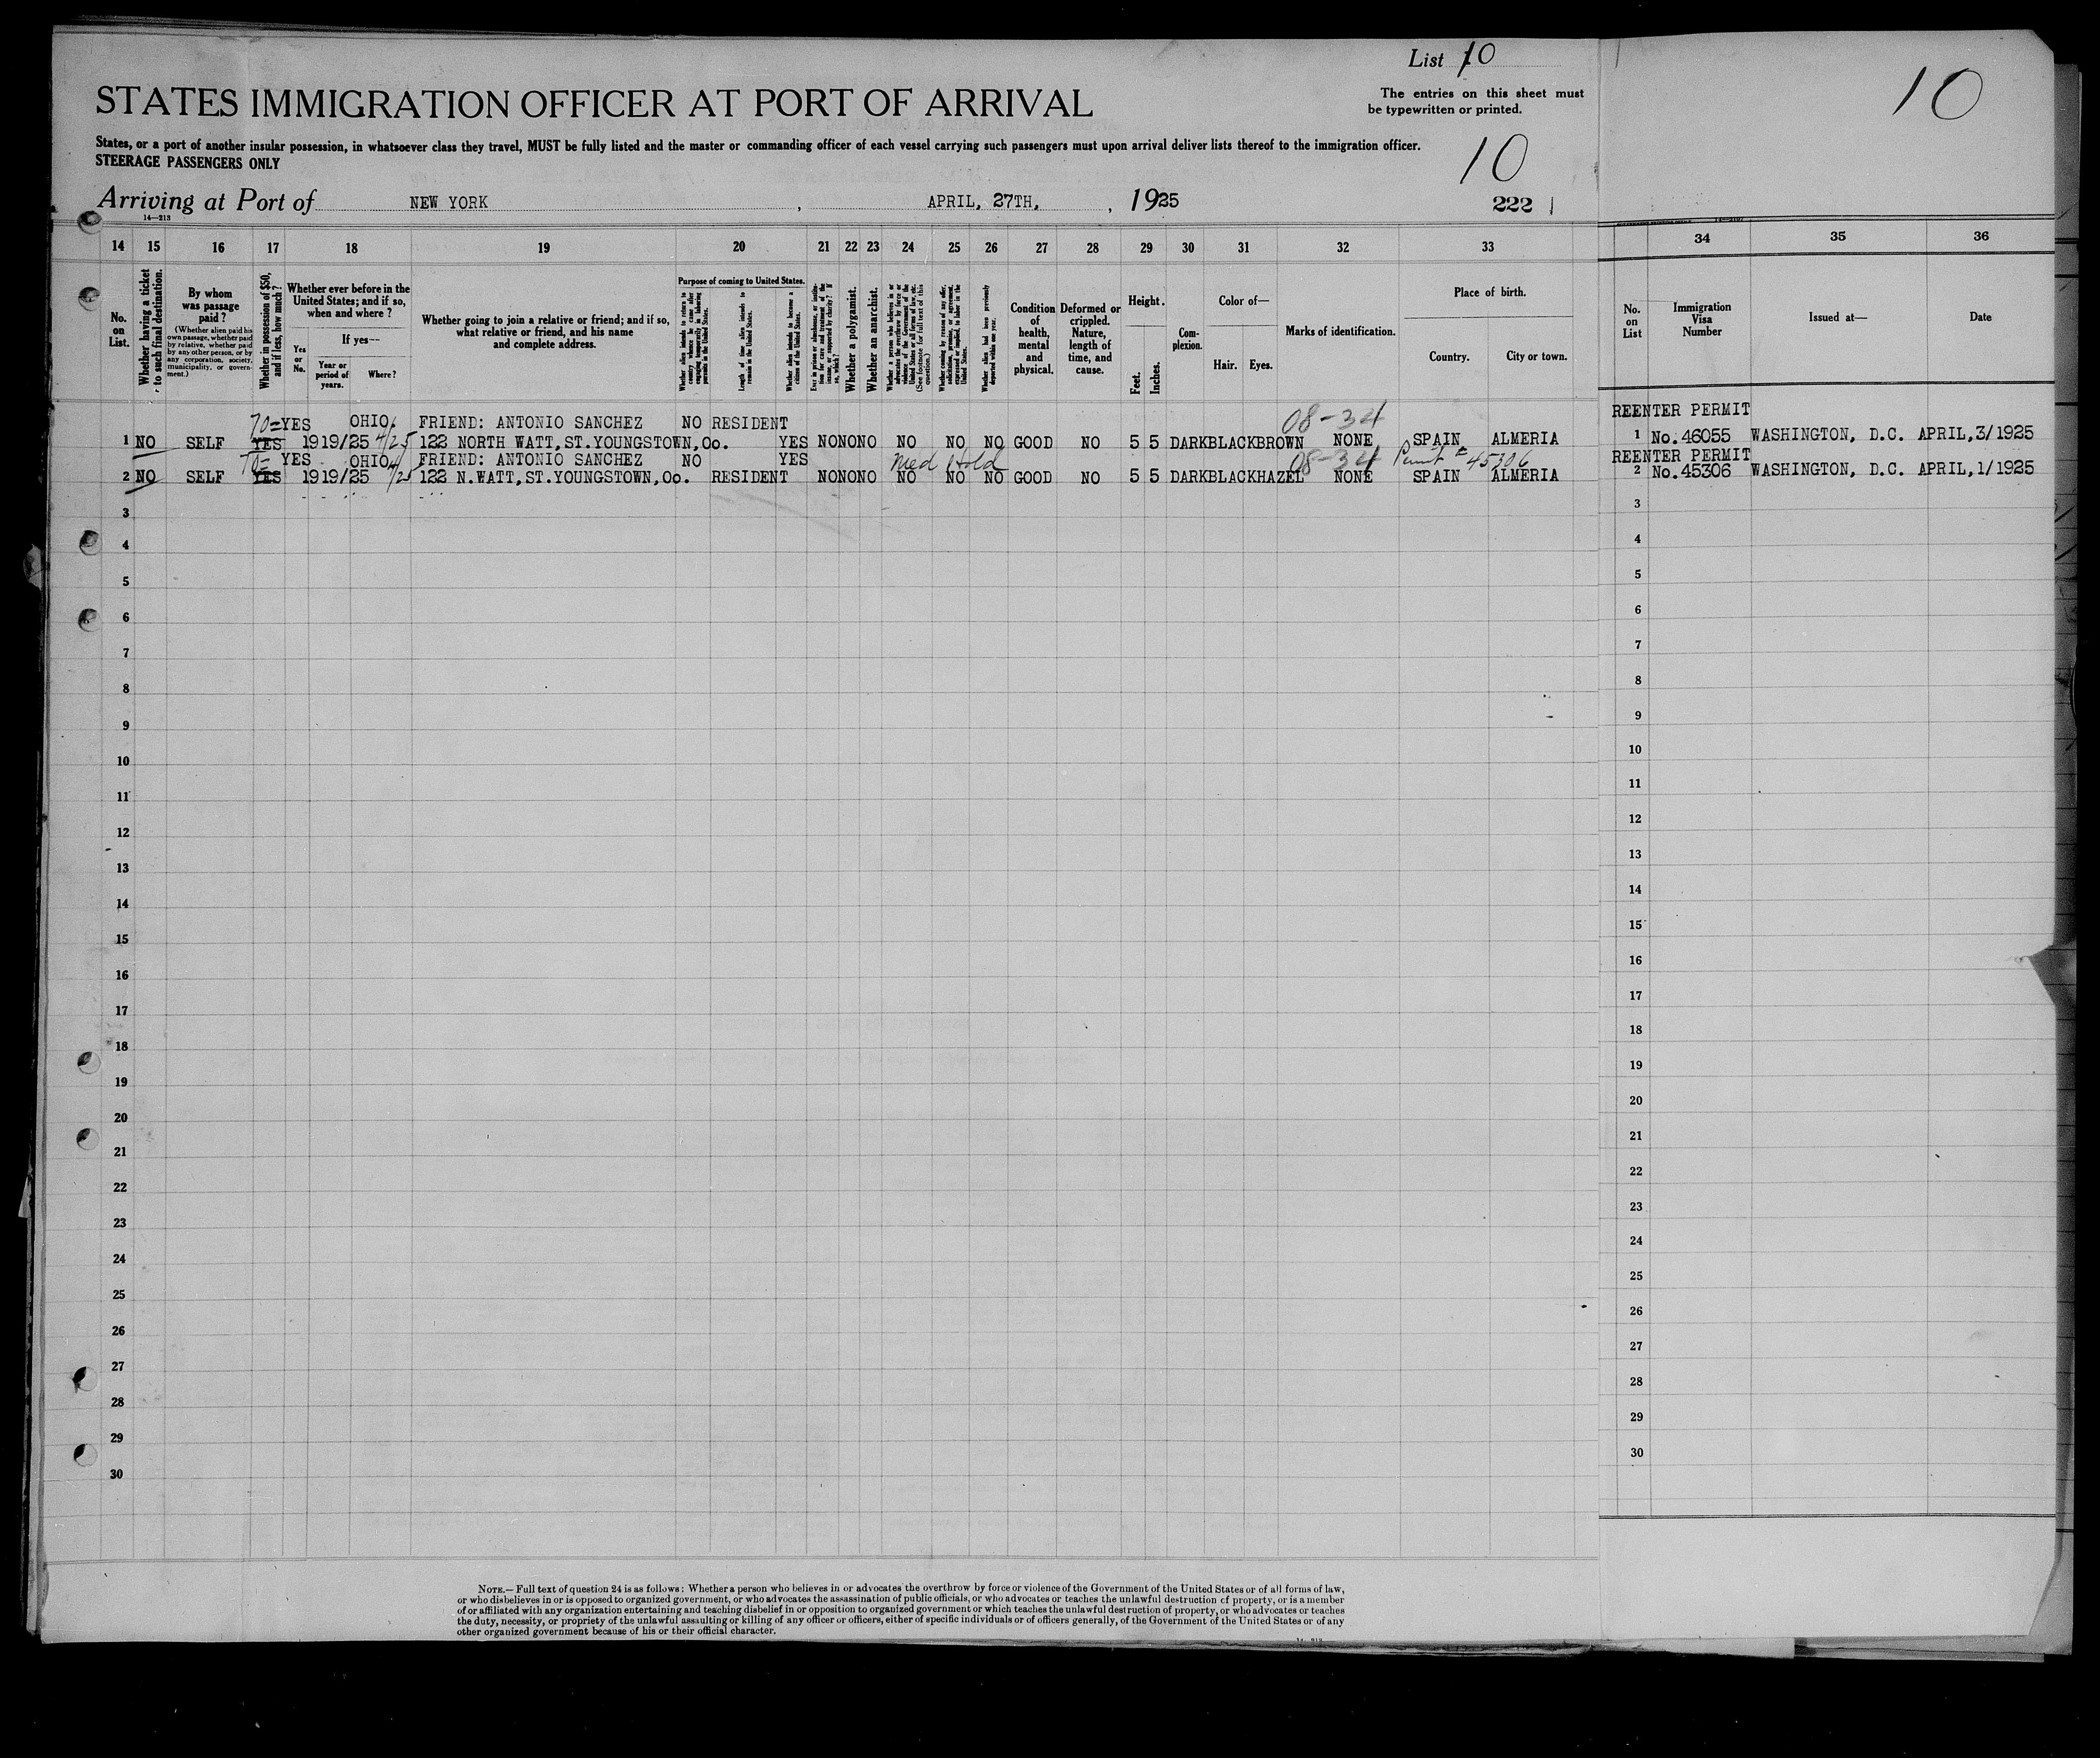 List 10
10
STATES IMMIGRATION OFFICER AT PORT OF ARRIVAL
The entries on this sheet must
be typewritten or printed.
States, or a port of another insular possession, in whatsoever class they travel, MUST be fully listed and the master or commanding officer of each vessel carrying such passengers must upon arrival deliver lists thereof to the immigration officer.
STEERAGE PASSENGERS ONLY
10
Arriving at Port of NEW YORK, APRIL, 27TH, , 1925
222
14—213
14 15 16 17 18 19 20 21 22 23 24 25 26 27 28 29 30 31 32 33 34 35 36
No. on List.
Whether having a ticket to such final destination.
By whom was passage paid?
(Whether alien paid his own passage, whether paid by relative, whether paid by any other person, or by any corporation, society, municipality, or government.)
Whether in possession of $50, and if less, how much?
Whether ever before in the United States; and if so, when and where?
Yes or No.
If yes—
Year or period of years.
Where?
Whether going to join a relative or friend; and if so, what relative or friend, and his name and complete address.
Purpose of coming to United States.
Length of time alien intends to remain in the United States.
Whether alien intends to become a citizen of the United States.
Whether a polygamist.
Whether an anarchist.
(See footnote for full text of this question.)
Whether alien had been previously deported within one year.
Condition of health, mental and physical.
Deformed or crippled. Nature, length of time, and cause.
Height.
Feet.
Inches.
Complexion.
Color of—
Hair. Eyes.
Marks of identification.
Place of birth.
Country. City or town.
No. on List
Immigration Visa Number
Issued at—
Date
70= YES OHIO, FRIEND: ANTONIO SANCHEZ NO RESIDENT 08-34 REENTER PERMIT
1 NO SELF YES 1919/25 4/25 122 NORTH WATT,ST.YOUNGSTOWN,Oo. YES NO NO NO NO NO NO GOOD NO 5 5 DARK BLACK BROWN NONE SPAIN ALMERIA 1 No.46055 WASHINGTON, D.C. APRIL,3/1925
70= YES OHIO, FRIEND: ANTONIO SANCHEZ NO YES Med Hold 08-34 Permit # 45306 REENTER PERMIT
2 NO SELF YES 1919/25 4/25 122 N.WATT,ST.YOUNGSTOWN,Oo. RESIDENT NO NO NO NO NO NO GOOD NO 5 5 DARK BLACK HAZEL NONE SPAIN ALMERIA 2 No.45306 WASHINGTON, D.C. APRIL,1/1925
3 3
4 4
5 5
6 6
7 7
8 8
9 9
10 10
11 11
12 12
13 13
14 14
15 15
16 16
17 17
18 18
19 19
20 20
21 21
22 22
23 23
24 24
25 25
26 26
27 27
28 28
29 29
30 30
NOTE.— Full text of question 24 is as follows: Whether a person who believes in or advocates the overthrow by force or violence of the Government of the United States or of all forms of law,
or who disbelieves in or is opposed to organized government, or who advocates the assassination of public officials, or who advocates or teaches the unlawful destruction of property, or is a member
of or affiliated with any organization entertaining and teaching disbelief in or opposition to organized government or which teaches the unlawful destruction of property, or who advocates or teaches
the duty, necessity, or propriety of the unlawful assaulting or killing of any officer or officers, either of specific individuals or of officers generally, of the Government of the United States or of any
other organized government because of his or their official character.